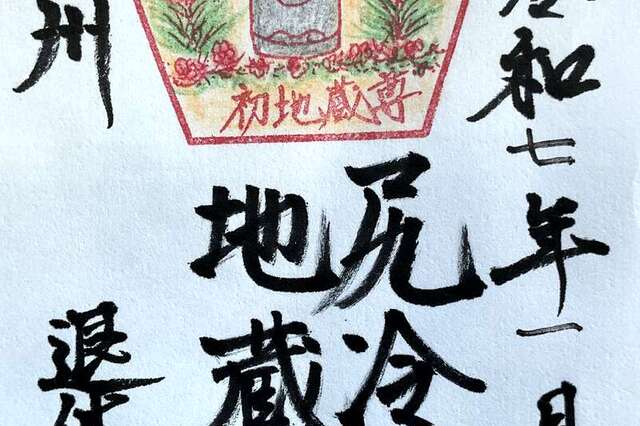 令和七年一月
初地蔵尊
尻冷
地蔵
州
退